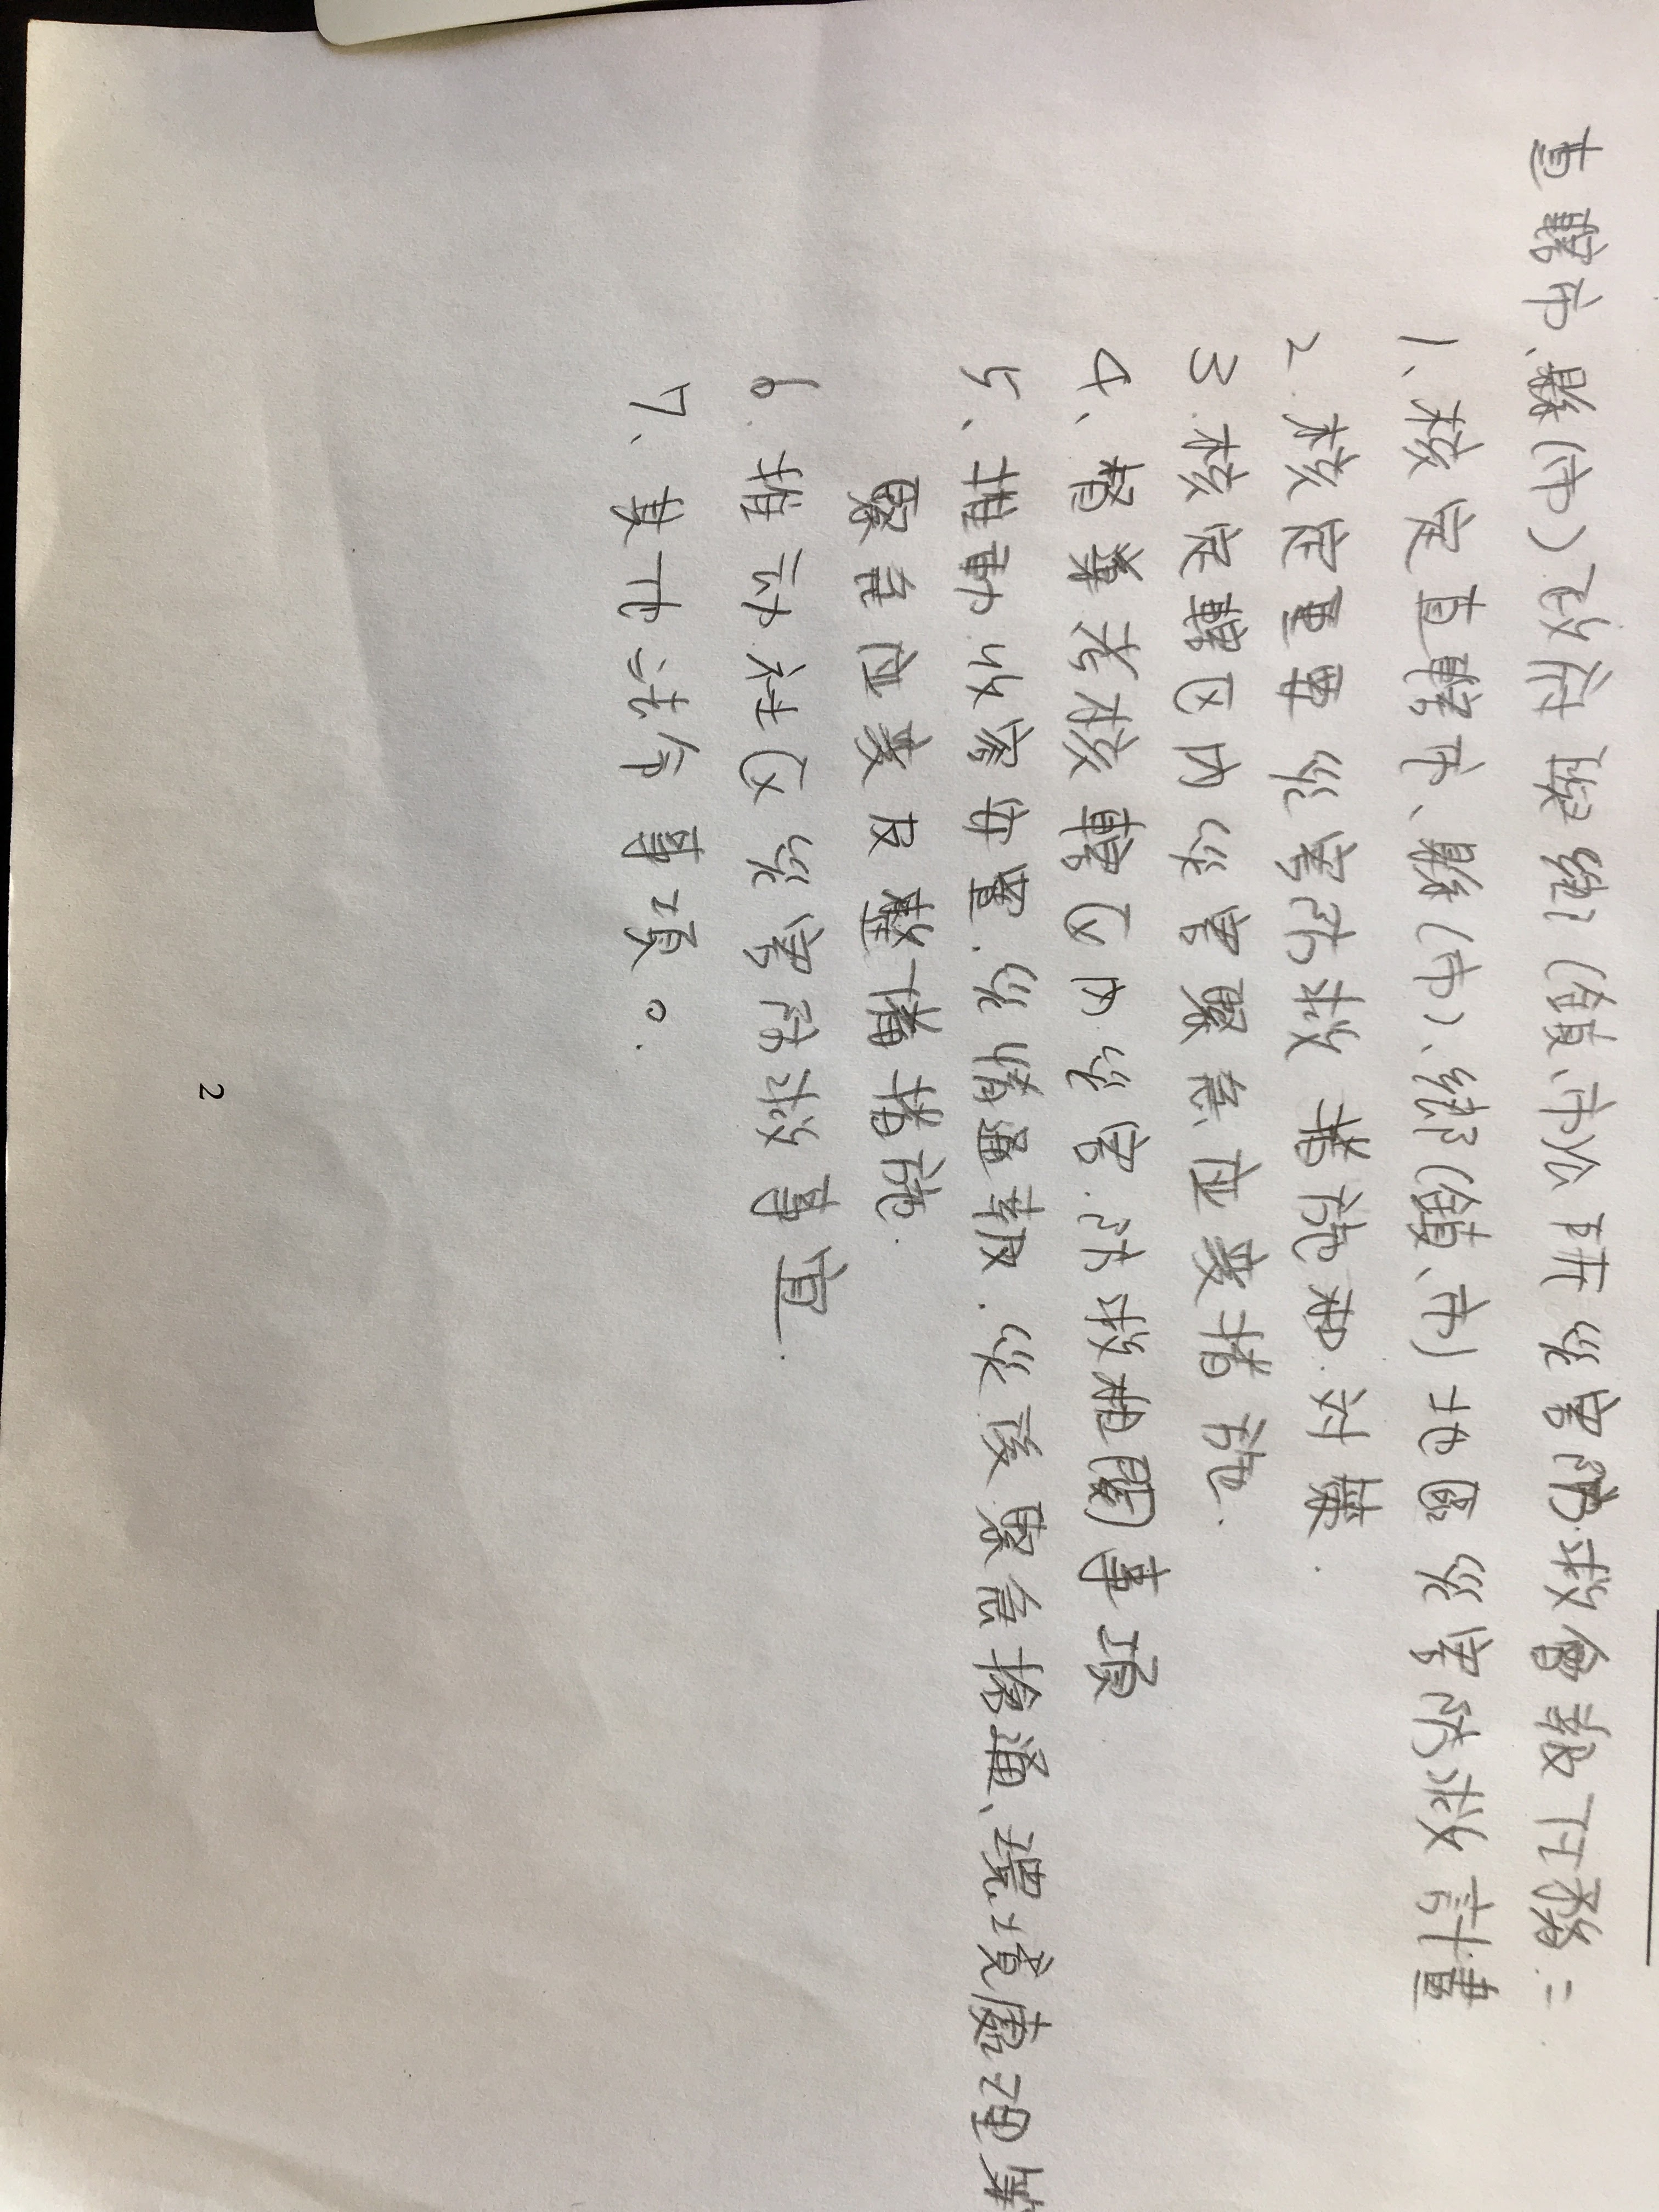 直轄市、縣(市)政府 鄉(鎮、市)公所 災害防救會報任務如下:
1、核定直轄市、縣(市)、鄉(鎮、市)地區災害防救計畫
2.核定重要災害防救措施 對策.
3.核定轄區內災害緊急應變措施.
4、督導考核轄區內災害防救相關事項
5、推動收容安置.災情通報.災後緊急搶通、環境清理等
緊急應變及整備措施.
6.推動社區災害防救事宜.
7、其他法令事項。
2